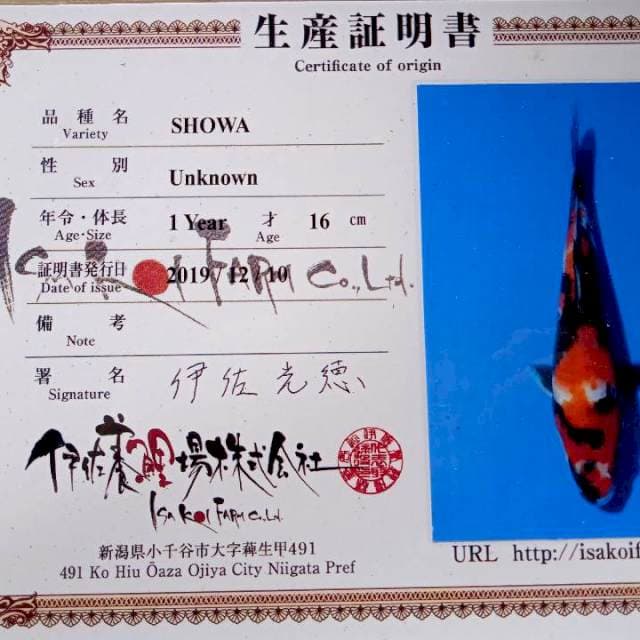 生産証明書
Certificate of origin
品種名
Variety
SHOWA
性別
Sex
Unknown
年令・体長
Age・Size
1 Year 才 16 cm
Age
証明書発行日
Date of issue
2019 / 12 / 10
Isa Koi Farm Co.,Ltd.
備考
Note
署名
Signature
伊佐光徳
伊佐養鯉場株式会社
Isa Koi Farm Co.,Ltd.
新潟県小千谷市大字薭生甲491
491 Ko Hiu Ōaza Ojiya City Niigata Pref
URL http://isakoif